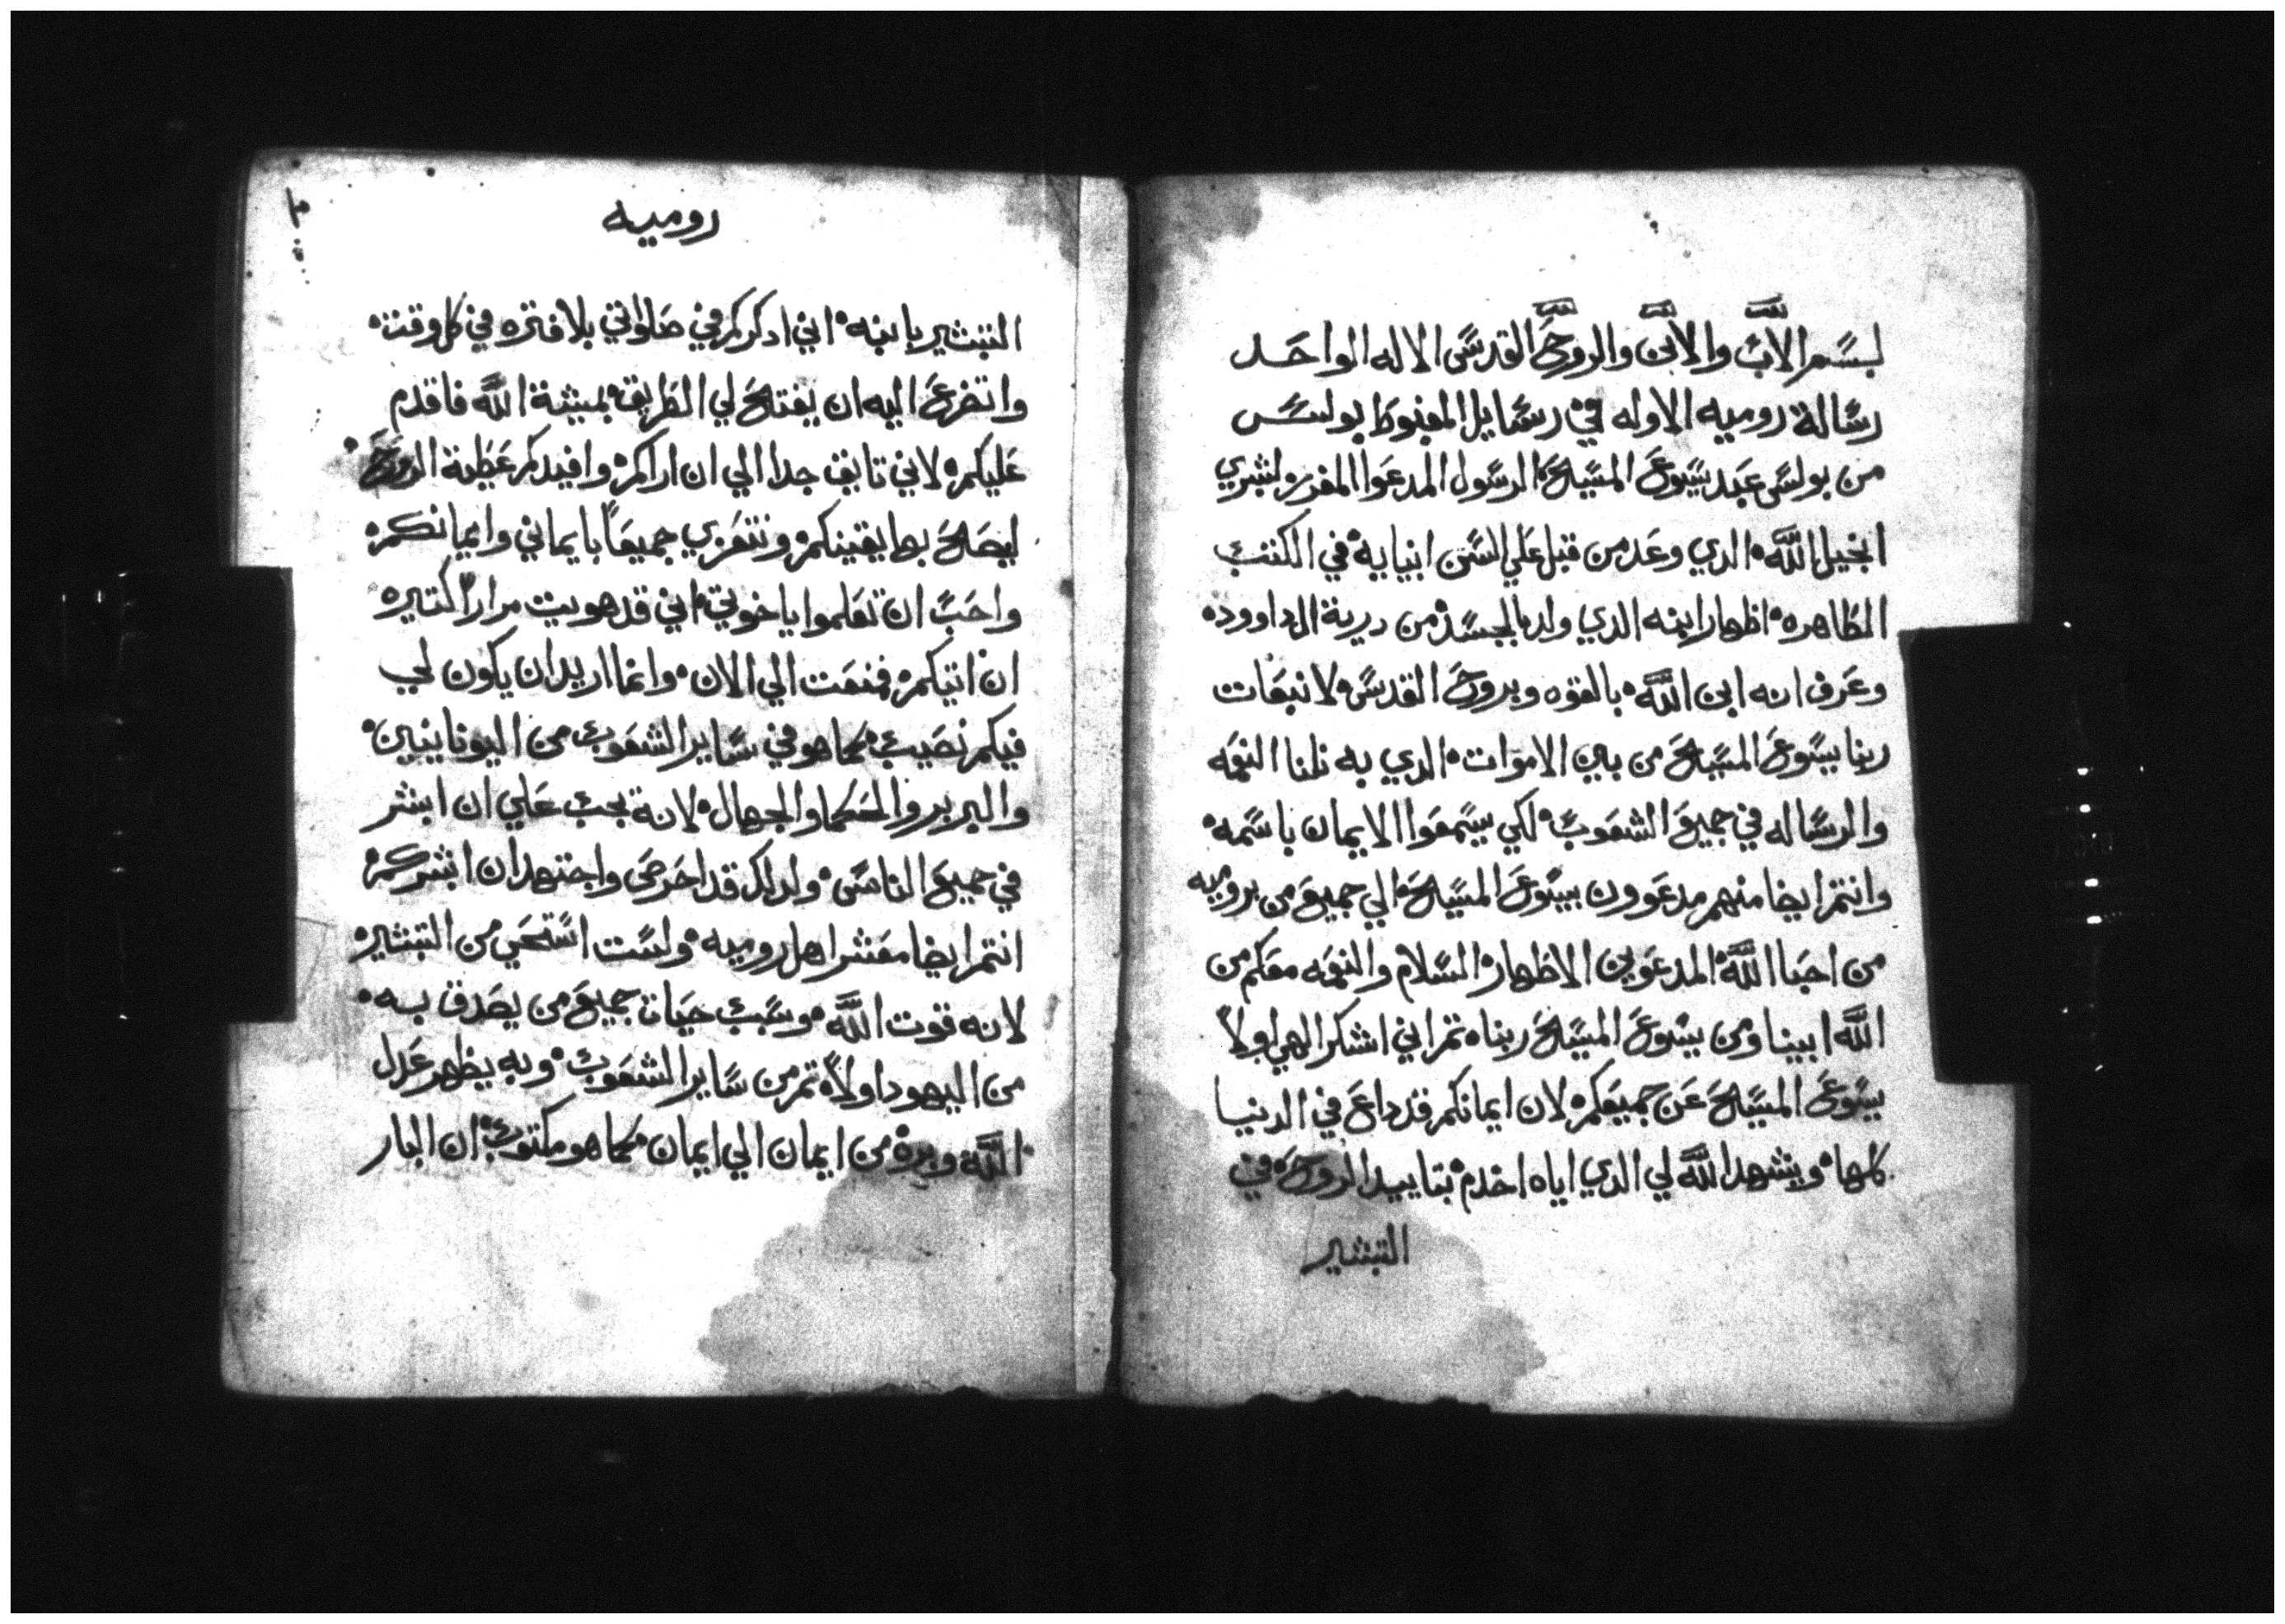 بسم الاب والابن والروح القدس الاله الواحد
رسالة روميه الاوله في رسايل المغبوط بولس
من بولس عبد يسوع المسيح الرسول المدعوا المفرز لبشري
انجيل الله الدي وعد من قبل علي السن انبيايه في الكتب
الطاهره اظهار ابنه الدي ولد بالجسد من درية ال داوود
وعرف انه ابن الله بالقوه وبروح القدس لانبعات
ربنا يسوع المسيح من بين الاموات الدي به نلنا النعمه
والرساله في جميع الشعوب لكي يسمعوا الايمان باسمه
وانتم ايضا منهم مدعوون بيسوع المسيح الي جميع من بروميه
من احبا الله المدعوين الاطهار السلام والنعمه معكم من
الله ابينا ومن يسوع المسيح ربنا تم اني اشكر الهي اولاً
بيسوع المسيح عن جميعكم لان ايمانكم قد داع في الدنيا
كلها ويشهد الله لي الدي اياه اخدم بتاييد الروح في
التبشير
روميه
التبشير بابنه اني ادكركم في صلواتي بلا فتره في كل وقت
واتضرع اليه ان يفتح لي الطريق بمشية الله فاقدم
عليكم لاني تايق جدا الي ان اراكم وافيدكم عطية الروح
ليصلح بها يقينكم ونتعزي جميعاً بايماني وايمانكم
واحب ان تعلموا ياخوتي اني قد هويت مراراً كتيره
ان اتيكم فمنعت الي الان وانما اريد ان يكون لي
فيكم نصيب كما هو في ساير الشعوب من اليونانيين
والبربر والحكما والجهال لانه يجب علي ان ابشر
في جميع الناس ولدلك قد احرص واجتهد ان ابشركم
انتم ايضا معشر اهل روميه ولست استحي من التبشير
لانه قوت الله وسبب حيات جميع من يصدق به
من اليهود اولاً تم من ساير الشعوب وبه يظهر عدل
الله وبره من ايمان الي ايمان كما هو مكتوب ان البار